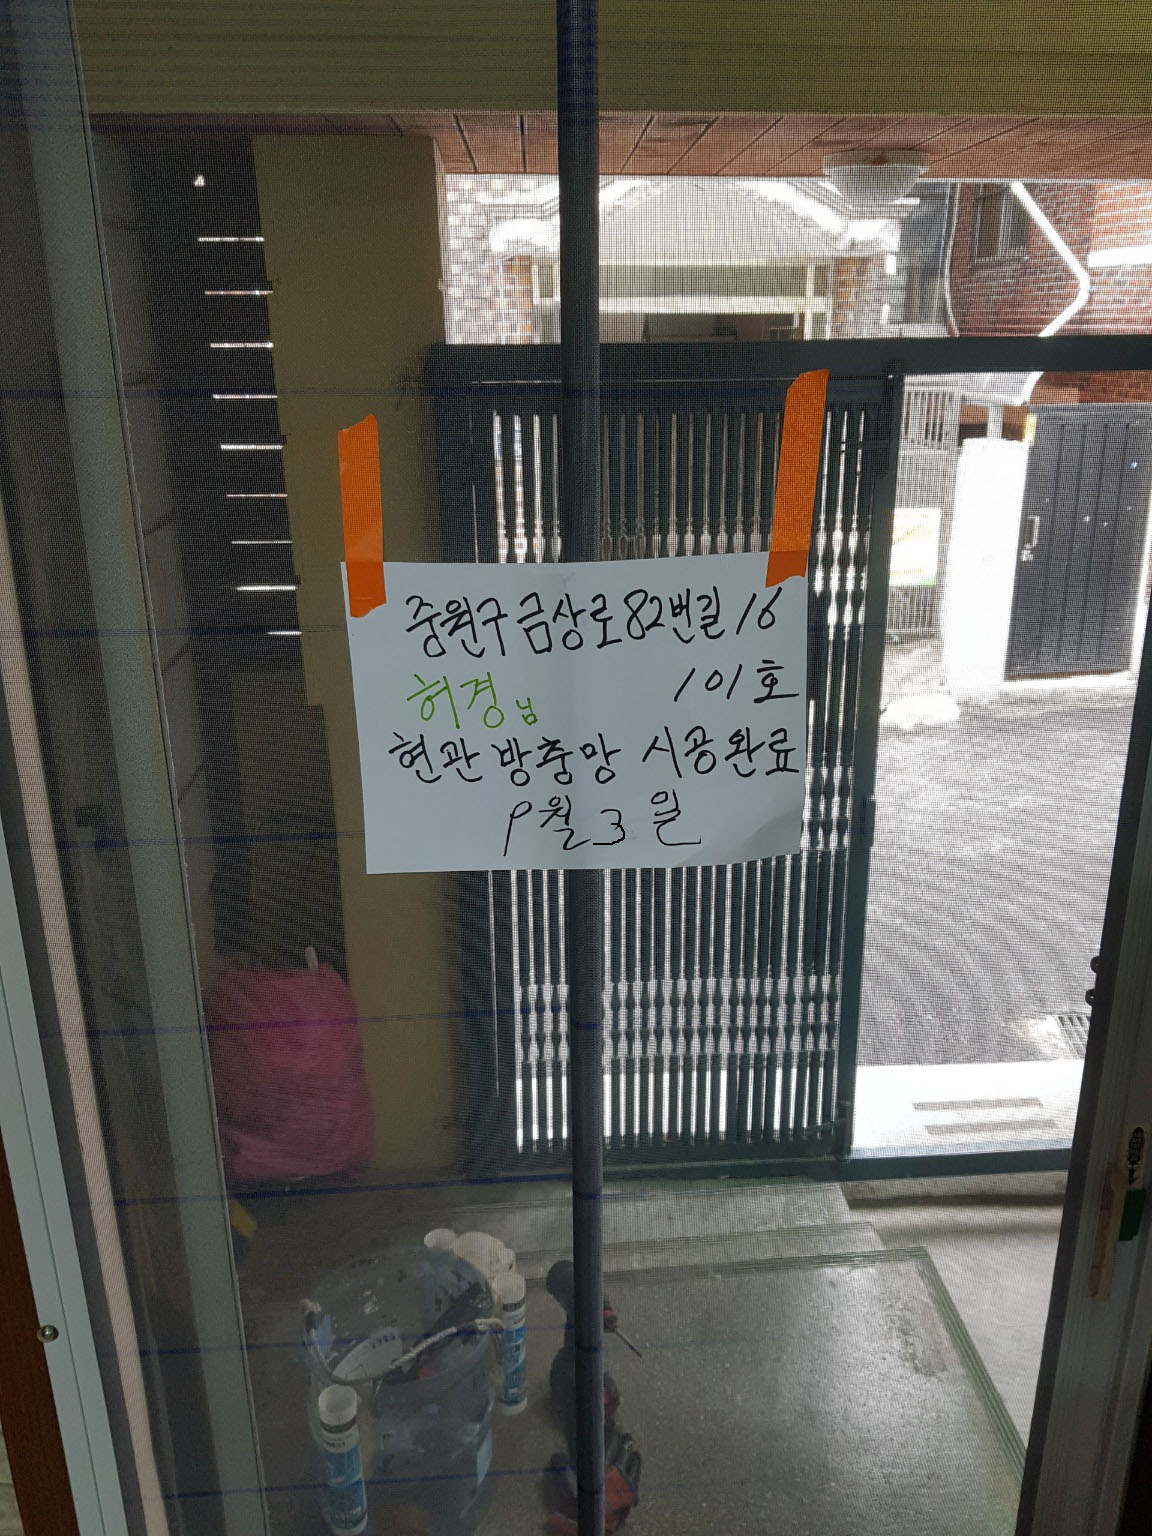 중원구 금상로82번길 16
허경님 101호
현관 방충망 시공완료
9월 3일